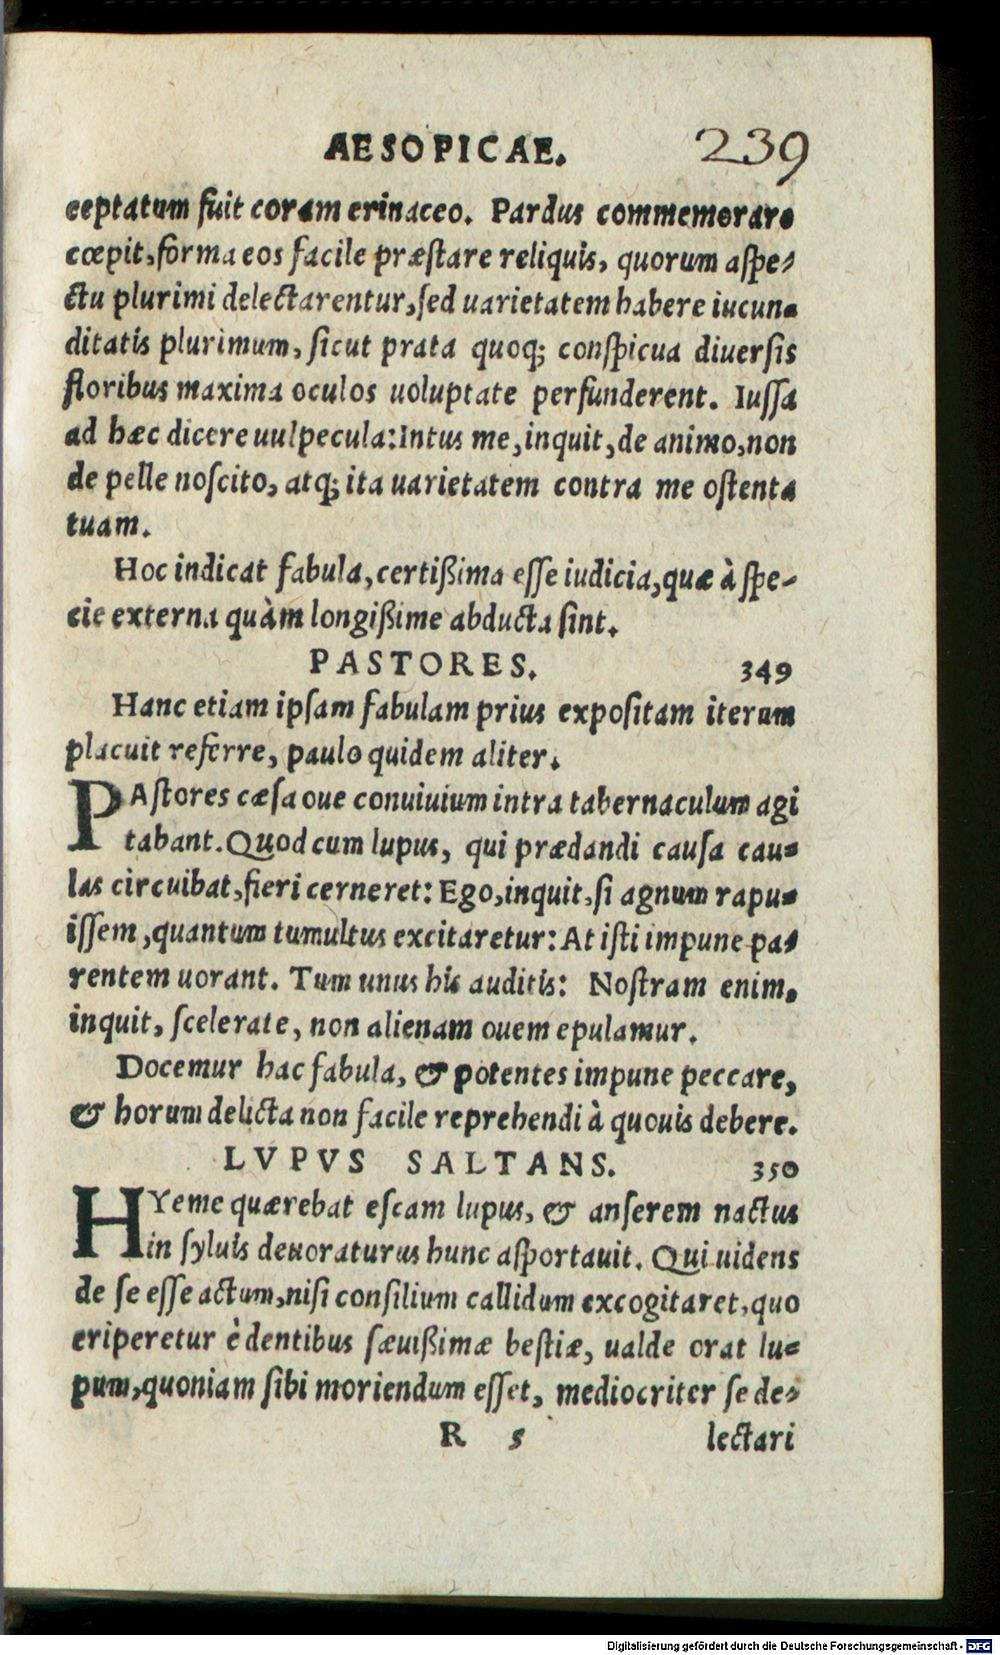 AESOPICAE. 239
ceptatum fuit coram erinaceo. Pardus commemorare
cœpit, forma eos facile præstare reliquis, quorum aspe-
ctu plurimi delectarentur, sed uarietatem habere iucun-
ditatis plurimum, sicut prata quoq; conspicua diuersis
floribus maxima oculos uoluptate perfunderent. Iussa
ad hæc dicere uulpecula: Intus me, inquit, de animo, non
de pelle noscito, atq; ita uarietatem contra me ostenta
tuam.
Hoc indicat fabula, certißima esse iudicia, quæ à spe-
cie externa quàm longißime abducta sint.
PASTORES. 349
Hanc etiam ipsam fabulam prius expositam iterum
placuit referre, paulo quidem aliter.
PAstores cæsa oue conuiuium intra tabernaculum agi
tabant. Quod cum lupus, qui prædandi causa cau-
las circuibat, fieri cerneret: Ego, inquit, si agnum rapu-
issem, quantum tumultus excitaretur: At isti impune pa-
rentem uorant. Tum unus his auditis: Nostram enim,
inquit, scelerate, non alienam ouem epulamur.
Docemur hac fabula, & potentes impune peccare,
& horum delicta non facile reprehendi à quouis debere.
LVPVS SALTANS. 350
HYeme quærebat escam lupus, & anserem nactus
in syluis deuoraturus hunc asportauit. Qui uidens
de se esse actum, nisi consilium callidum excogitaret, quo
eriperetur è dentibus sæuißimæ bestiæ, ualde orat lu-
pum, quoniam sibi moriendum esset, mediocriter se de-
R 5 lectari
Digitalisierung gefördert durch die Deutsche Forschungsgemeinschaft - DFG